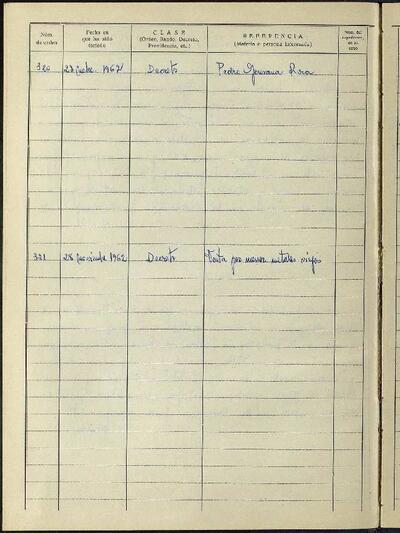 Núm. de orden
Fecha en que ha sido dictado
CLASE
(Orden, Bando, Decreto, Providencia, etc.)
REFERENCIA
(Materia o persona interesada)
Núm. del
320 28 1962 Decreto Pedro Rosa
321 28 noviembre 1962 Decreto Venta por menor metales viejos